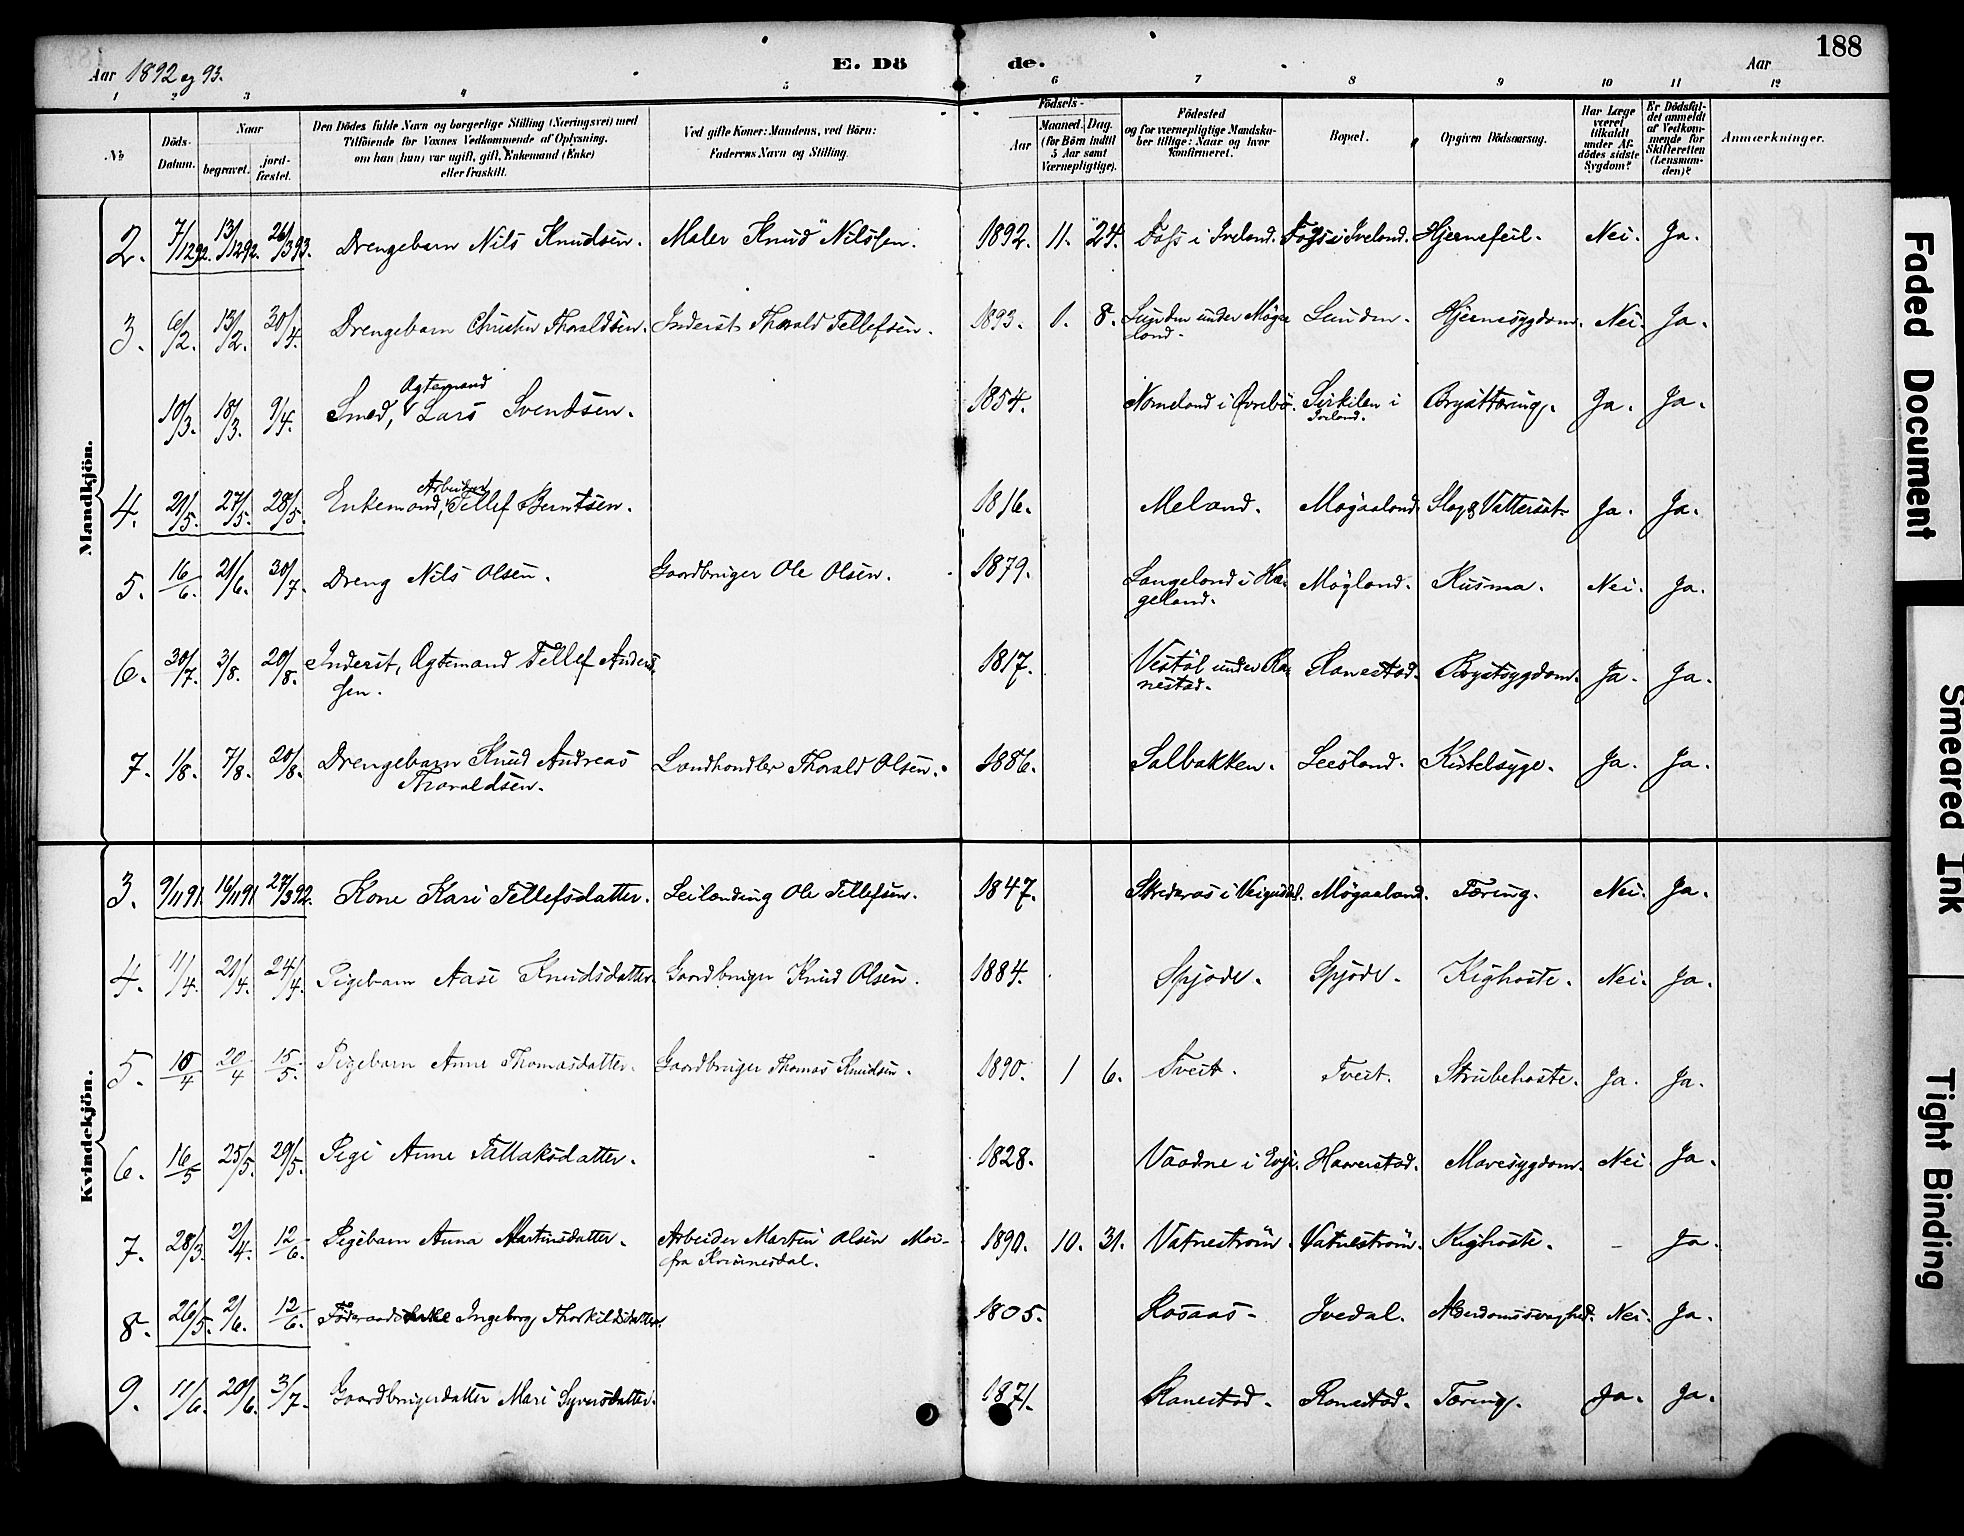 Aar 1892 og 93. E. Dö de. Aar 188
1 2 3 4 5 6 7 8 9 10 11 12
No
Döds-Datum.
Naar
begravet.
jord-fæstet.
Den Dödes fulde Navn og borgerlige Stilling (Næringsvei) med
Tilföiende for Voxnes Vedkommende af Oplysning,
om han (hun) var ugift, gift, Enkemand (Enke)
eller fraskilt.
Ved gifte Koner: Mandens, ved Börn:
Faderens Navn og Stilling.
Födsels-
Aar
Maaned. Dag.
(for Börn indtil
5 Aar samt
Værnepligtige).
Födested
og for værnepligtige Mandska-
ber tillige: Naar og hvor
konfirmeret.
Bopæl.
Opgiven Dödsaarsag.
Har Læge
været
tilkaldt
under Af-
dödes sidste
Sygdom?
Er Dödsfal-
det anmeldt
af Vedkom-
mende for
Skifteretten
(Lensman-
den)?
Anmærkninger.
Mandkjön.
2. 7/12 92. 13/12 92. 26/3 93. Drengebarn Nils Knudsen. Maler Knud Nilssen. 1892. 11. 24. Foss i Iveland. Foss i Iveland. Hjernefeil. Nei. Ja.
3. 6/2. 13/2. 30/4. Drengebarn Christen Thoraldsen. Inderst Thorald Tellefsen. 1893. 1. 8. Lunden under Mögeland. Lunden. Hjernesygdom. Nei. Ja.
10/3. 18/3. 9/4. Smed, Ægtemand Lars Svendsen. 1854. Nomeland i Øvrebö. i Iveland. Brysttæring. Ja. Ja.
4. 21/5. 27/5. 28/5. Enkemand, Arbeider Tellef Berntsen. 1816. Meland. Mögaaland. Slag & Vattersot. Ja. Ja.
5. 16/6 21/6. 30/7. Dreng Nils Olsen. Gaardbruger Ole Olsen. 1879. Langeland i Hægeland. Mögland. Kusma. Nei. Ja.
6. 30/7. 3/8. 20/8. Inderst, Ægtemand Tellef Anderssen. 1817. Vestöl under Ranestad. Ranestad. Brystsygdom. Ja. Ja.
7. 1/8. 7/8. 20/8. Drengebarn Knud Andreas
Thoraldsen. Landhandler Thorald Olsen. 1886. Salbakken. Leesland. Kirtelsyge. Ja. Ja.
Kvindekjön.
3. 9/11 91. 16/11 91 27/3 92. Kone Kari Tellefsdatter. Leilænding Ole Tellefsen. 1847. i Mögaaland. Tæring. Nei. Ja.
4. 11/4. 21/4. 24/4. Pigebarn Aase Knudsdatter. Gaardbruger Knud Olsen. 1884. Spjode. Spjode. Kighoste. Nei. Ja.
5. 10/4 20/4 15/5. Pigebarn Anne Thomasdatter. Gaardbruger Thomas Knudsen. 1890. 1 6. Tveit. Tveit. Strubehoste. Ja. Ja.
6. 16/5 25/5. 29/5. Pige Anne Tallaksdatter. 1828. Vaadne i Evje. Haaverstad. Mavesygdom. Nei. Ja.
7. 28/3. 2/4. 12/6. Pigebarn Anna Martinsdatter. Arbeider Martin Olsen Moi-
fra Kvinnesdal. 1890. 10. 31. Vatneström. Vatneström. Kighoste. - Ja.
8. 26/5. 2/6. 12/6. Föderaadsenke Ingeborg Thorkildsdatter. 1805. Rosaas. Ivedal. Alderdomssvaghed. Nei. Ja.
9. 11/6. 20/6. 3/7. Gaardbrugerdatter Mari Syversdatter. 1871. Ranestad. Ranestad. Tæring. Ja. Ja.
Faded Document
Smeared Ink
Tight Binding